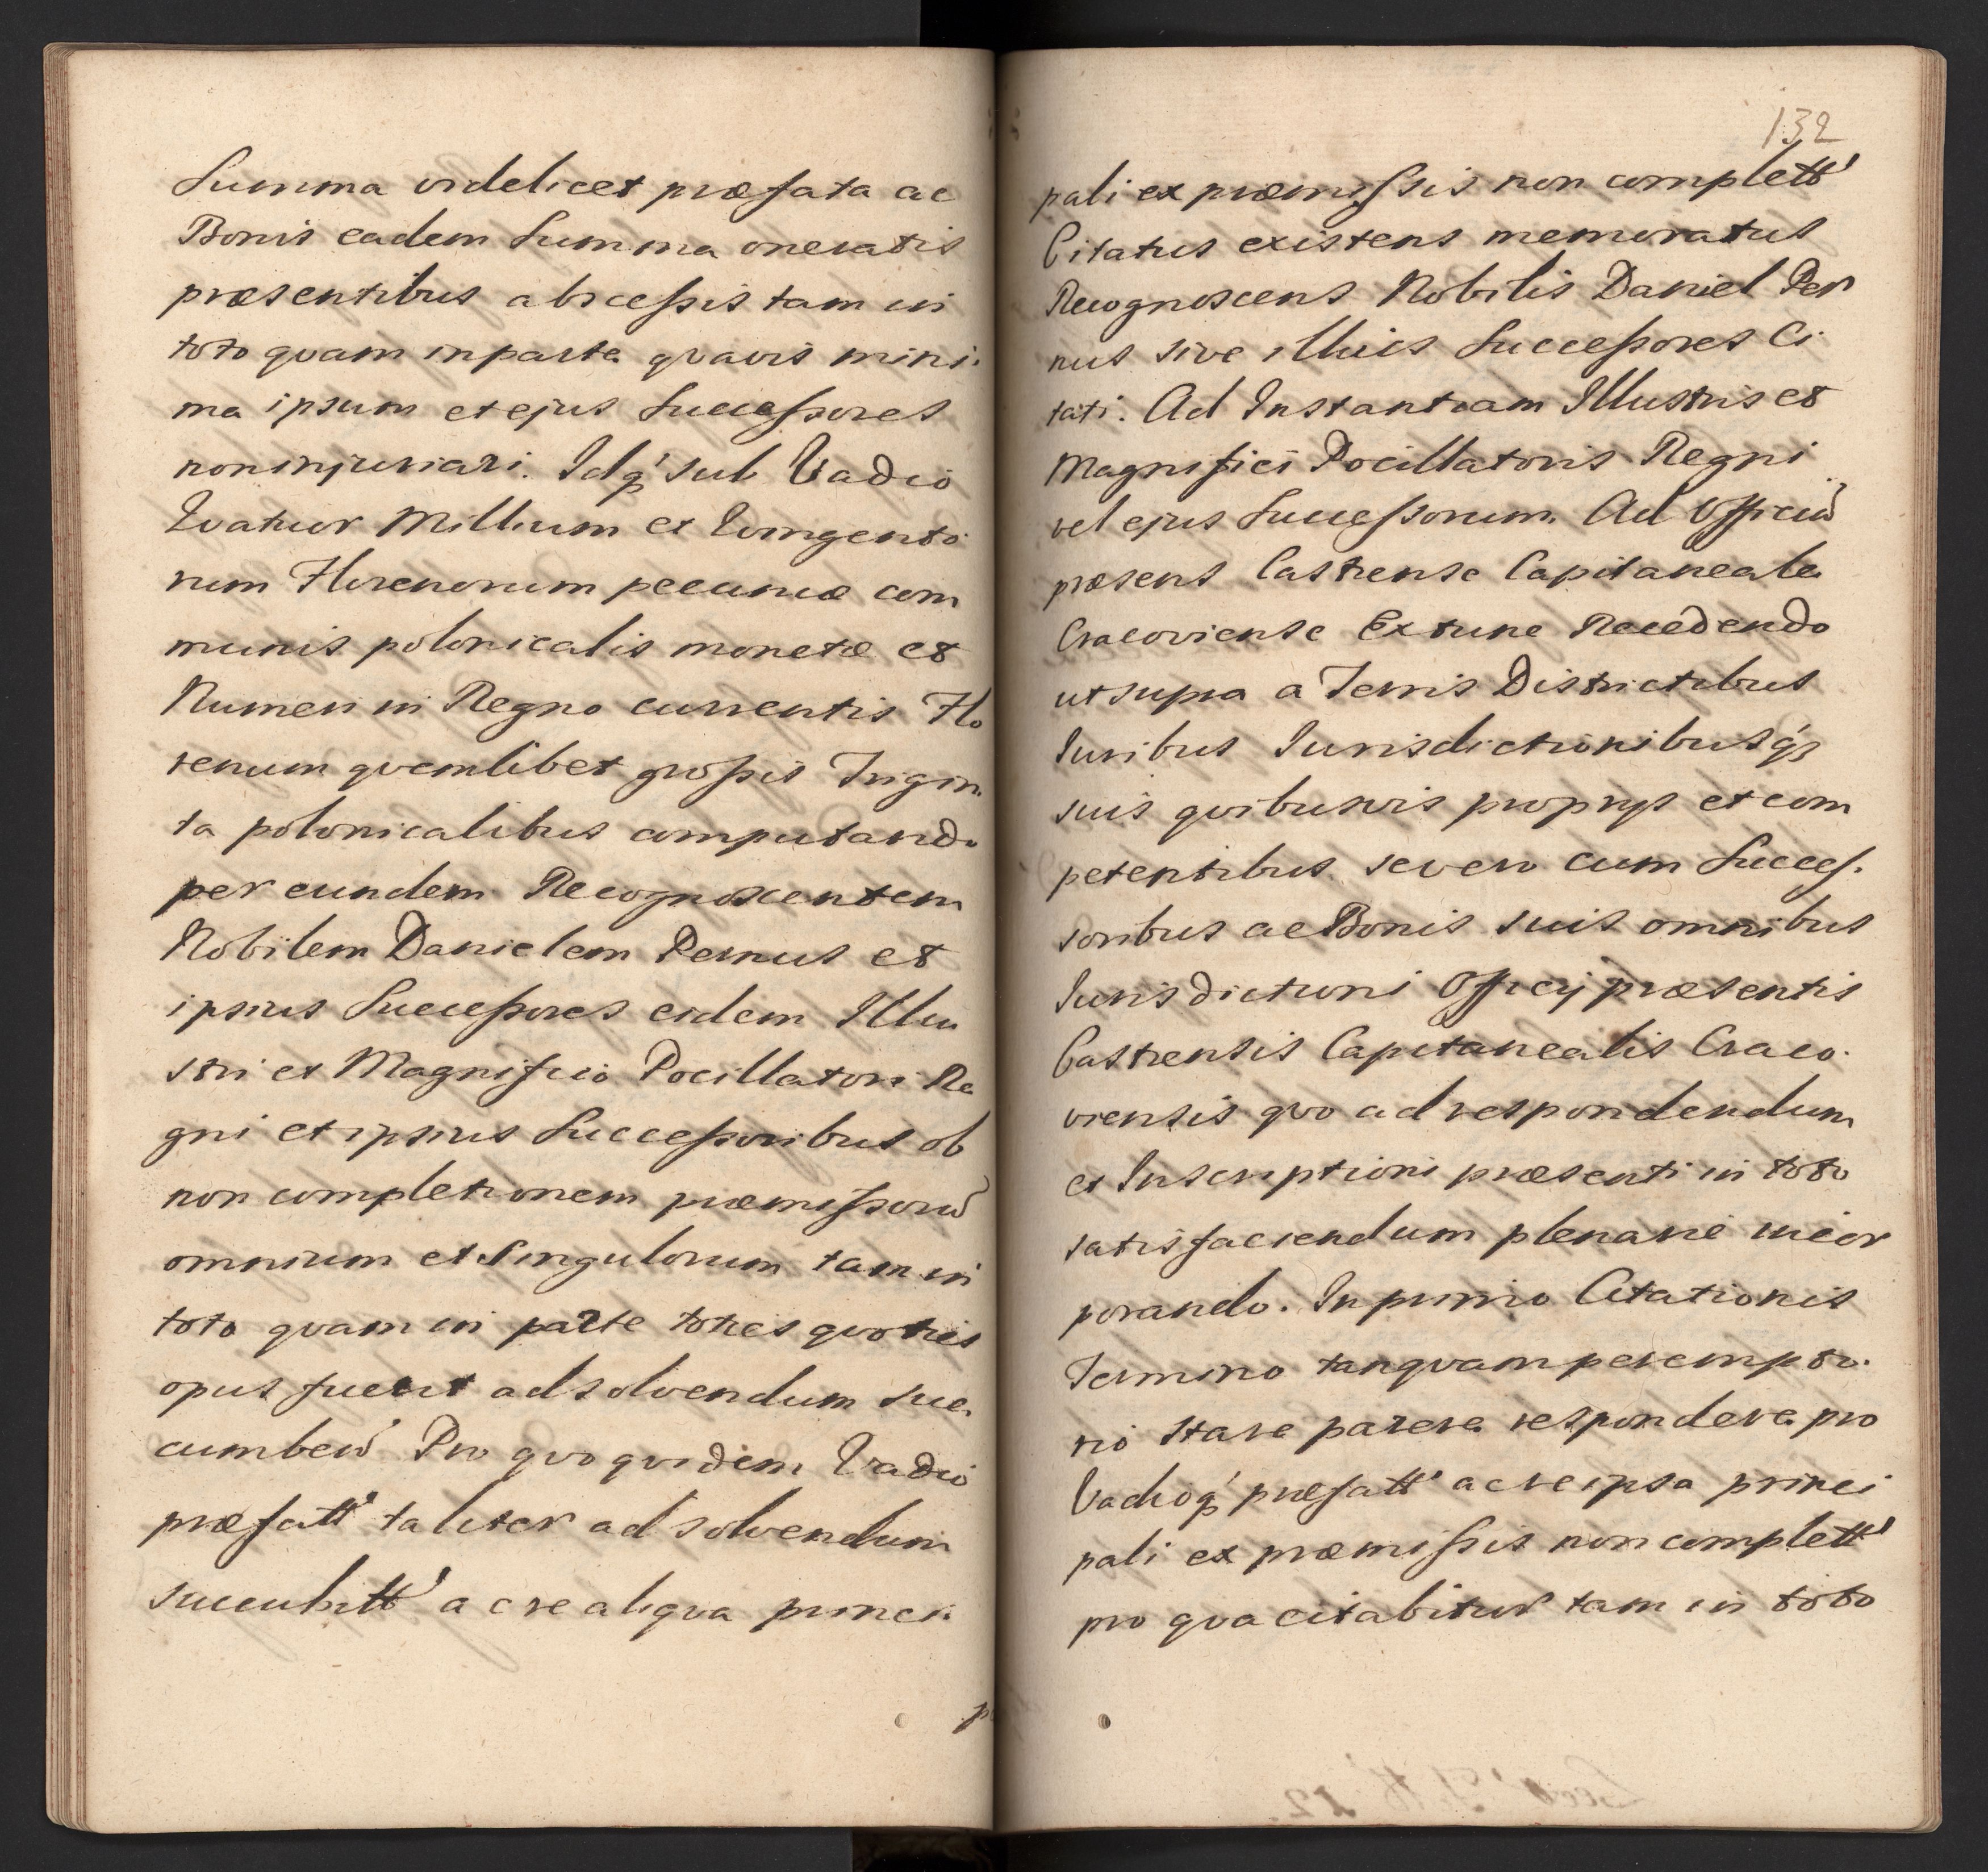 Summa videlicet præfata ac
Bonis eadem Summa oneratis
præsentibus abscessis tam in
toto qvam in parte qvavis mini-
ma ipsum et ejus Successores
non injuriari. Idq' sub Vadio
Qvatuor Millium et Qvingento
rum Florenorum pecuniæ com
munis polonicalis monetæ et
Numeri in Regno currentis Flo
renum qvemlibet grossis Trigin-
ta polonicalibus computando
per eundem Recognoscentem
Nobilem Danielem Pernus et
ipsius Successores eidem Illu
stri et Magnifico Pocillatori Re
gni et ipsius Successoribus ob
non completionem præmissorū
omnium et Singulorum tam in
toto qvam in parte toties qvoties
opus fuerit ad solvendum suc-
cumben̄' Pro qvo qvidem Vadio
præfatt' taliter ad solvendum
succubitt' ac re aliqva princi-
132
pali ex præmissis non complett'
Citatus existens memoratus
Recognoscens Nobilis Daniel Per
nus sive illius Successores Ci-
tati. Ad Instantiam Illustris et
Magnifici Pocillatoris Regni
vel ejus Successorum. Ad Officiū
præsens Castrense Capitaneale
Cracoviense Ex tunc Recedendo
ut supra a Terris Districtibus
Iuribus Iurisdictionibusq'
suis qvibusvis proprys et com
petentibus. se vero cum Succes-
soribus ac Bonis suis omnibus
Iurisdictioni Officij præsentis
Castrensis Capitanealis Craco-
viensis qvo ad respondendum
et Inscriptioni præsenti in toto
satisfaciendum plenarie incor
porando. In primo Citationis
Termino tanqvam perempto-
rio Stare parere respondere pro
Vadioq' præfatt' ac re ipsa princi
pali ex præmissis non complett'
pro qva citabitur tam in toto